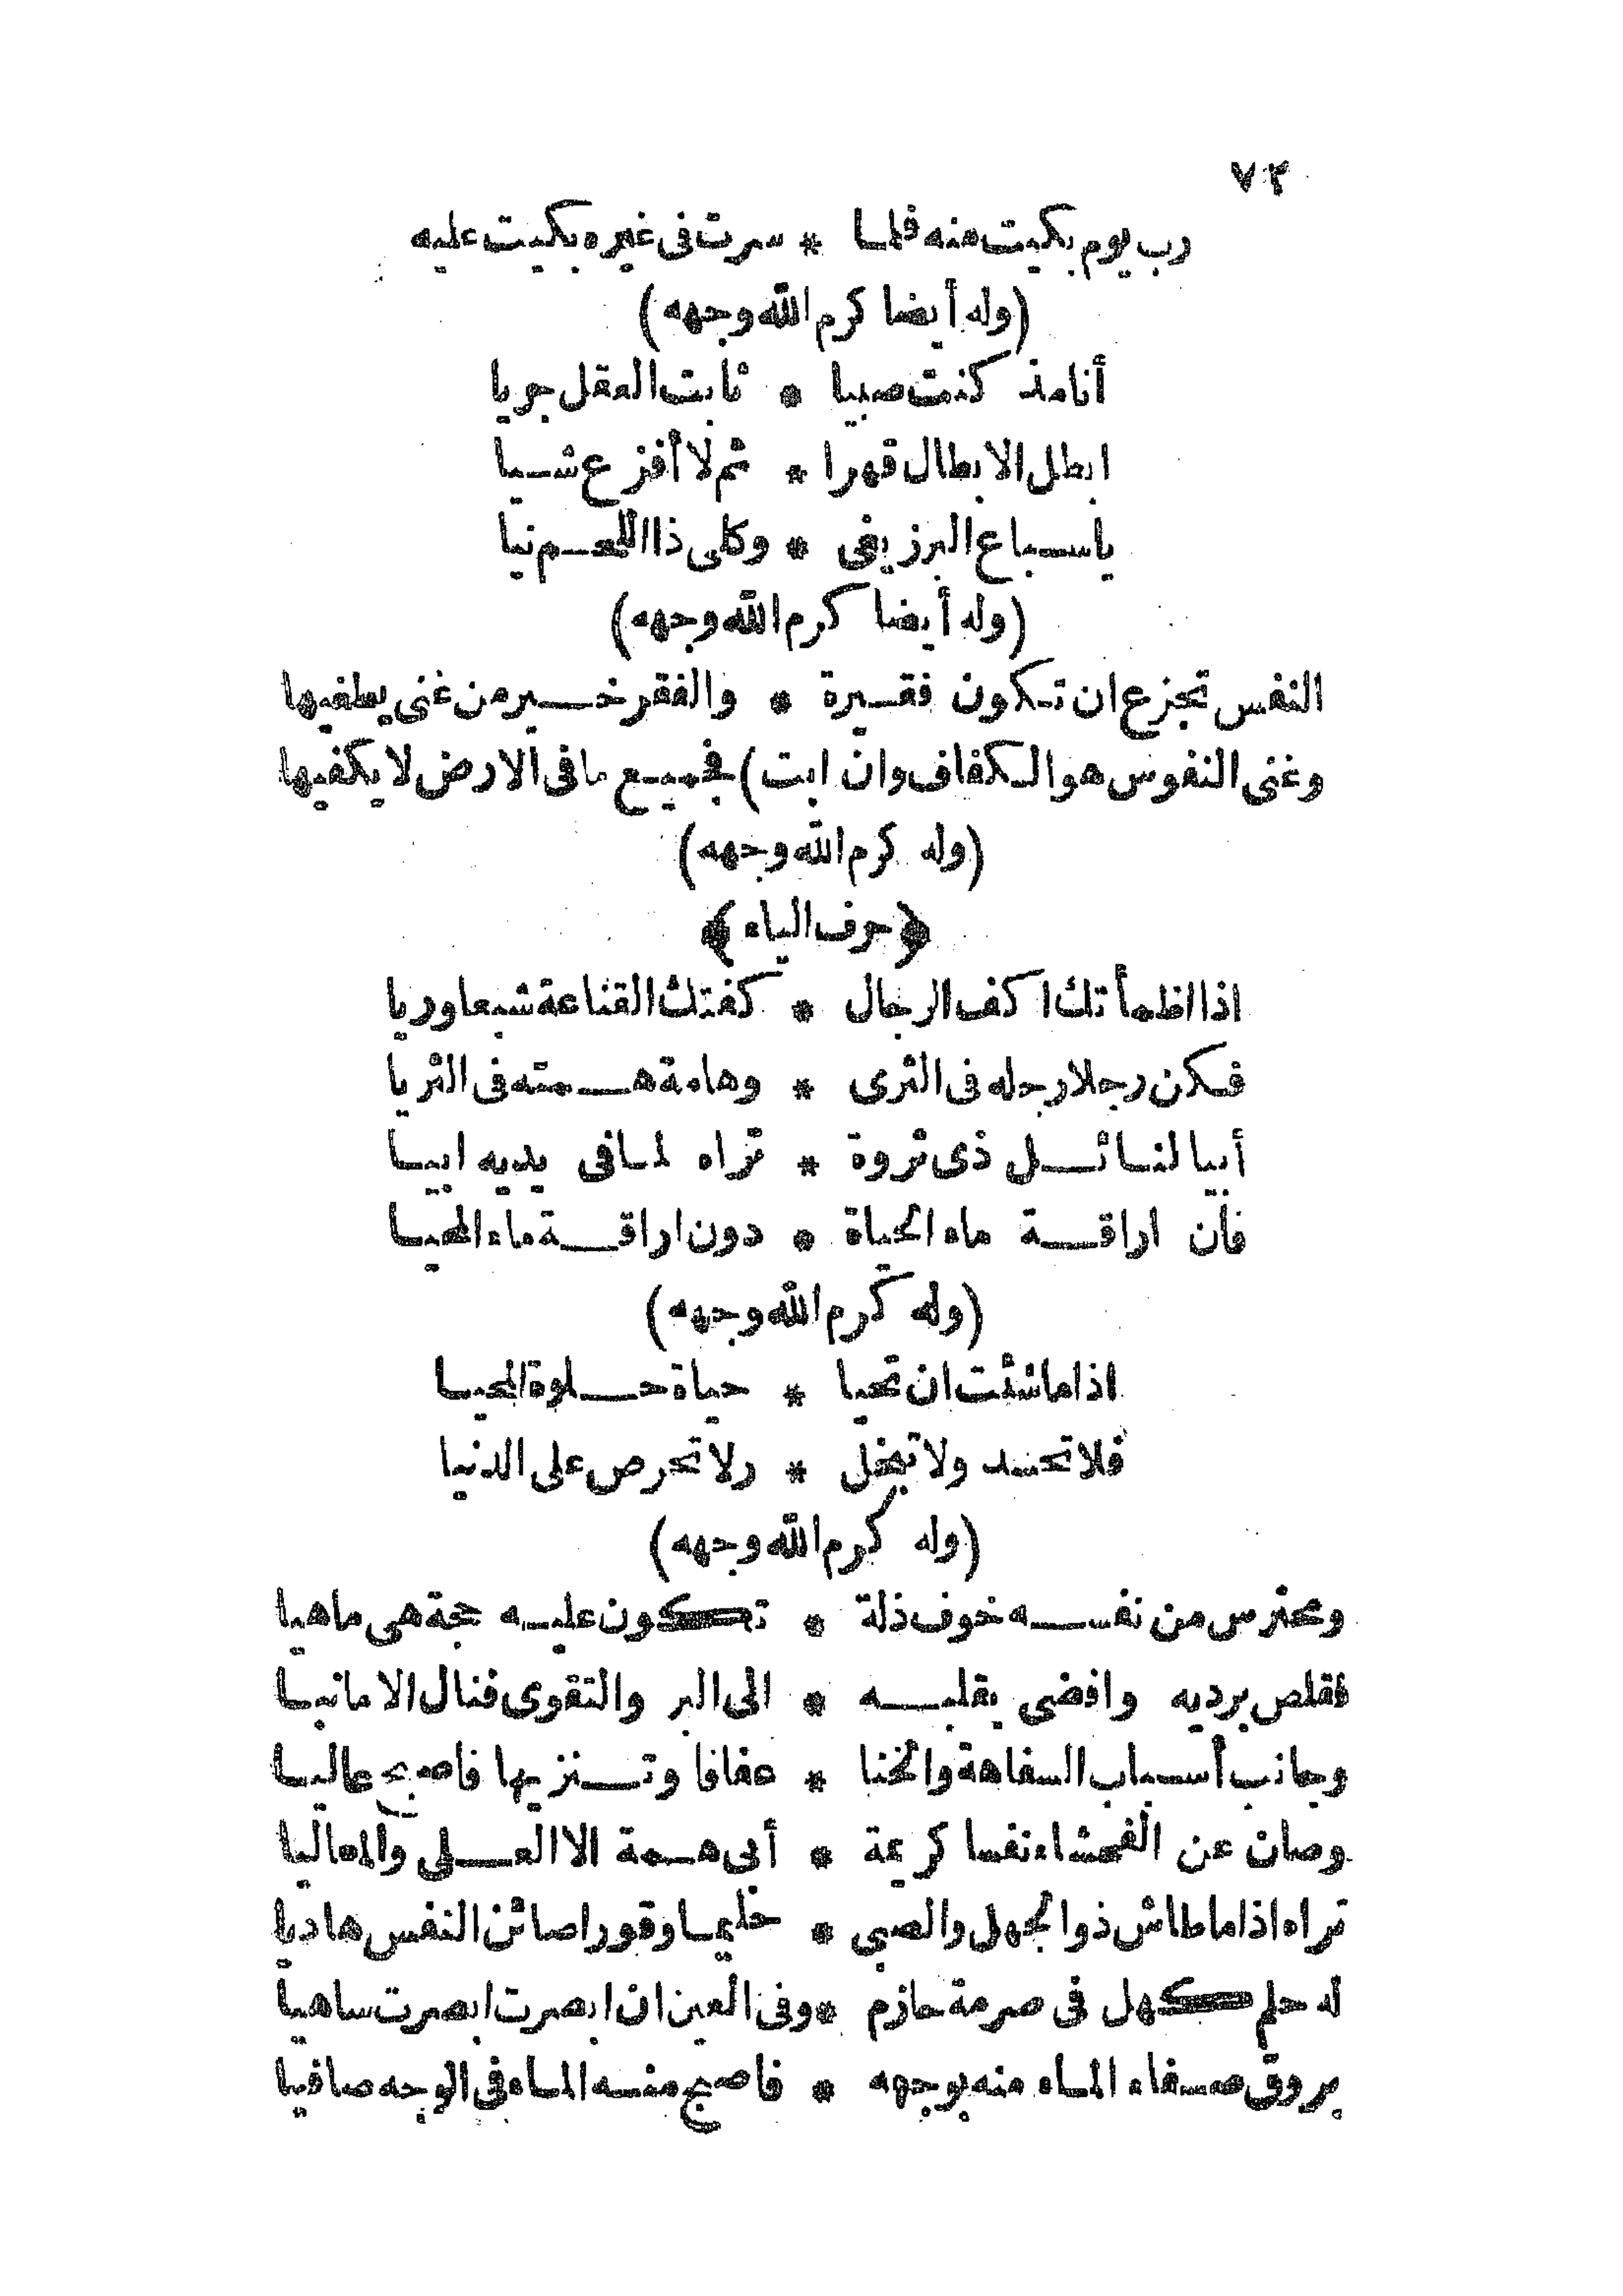 ٧٢
رب يوم بكيت منه فلما * سرت فى غيره بكيت عليه
(وله أيضا كرم الله وجهه)
أنا مذ كنت صبيا * ثابت العقل جريا
ابطل الابطال قهرا * ثم لا أفزع شيا
يا سباع البر زيفى * وكلى ذا اللحم نيا
(وله أيضا كرم الله وجهه)
النفس تجزع ان تكون فقيرة * والفقر خير من غنى يطغيها
وغنى النفوس هو الكفاف وان ابت) فجميع ما فى الارض لا يكفيها
(وله كرم الله وجهه)
﴿حرف الياء﴾
اذا اظمأتك اكف الرجال * كفتك القناعة شبعا وريا
فكن رجلا رجله فى الثرى * وهامة همته فى الثريا
أبيا لنائل ذى ثروة * تراه لما فى يديه ابيا
فان اراقة ماء الحياة * دون اراقة ماء المحيا
(وله كرم الله وجهه)
اذا ما شئت ان تحيا * حياة حلوة المحيا
فلا تحسد ولا تبخل * ولا تحرص على الدنيا
(وله كرم الله وجهه)
ومحترس من نفسه خوف ذلة * تكون عليه حجة هى ماهيا
فقلص برديه وافضى بقلبه * الى البر والتقوى فنال الامانيا
وجانب أسباب السفاهة والخنا * عفافا وتنزيها فاصبح عاليا
وصان عن الفحشاء نفسا كريمة * أبى همة الا العلى والمعاليا
تراه اذا ما طاش ذو الجهل والصبى * حليما وقورا صائن النفس هاديا
له حلم كهل فى صرمة حازم * وفى العين ان ابصرت ابصرت ساهيا
يروق صفاء الماء منه بوجهه * فاصبح منه الماء فى الوجه صافيا